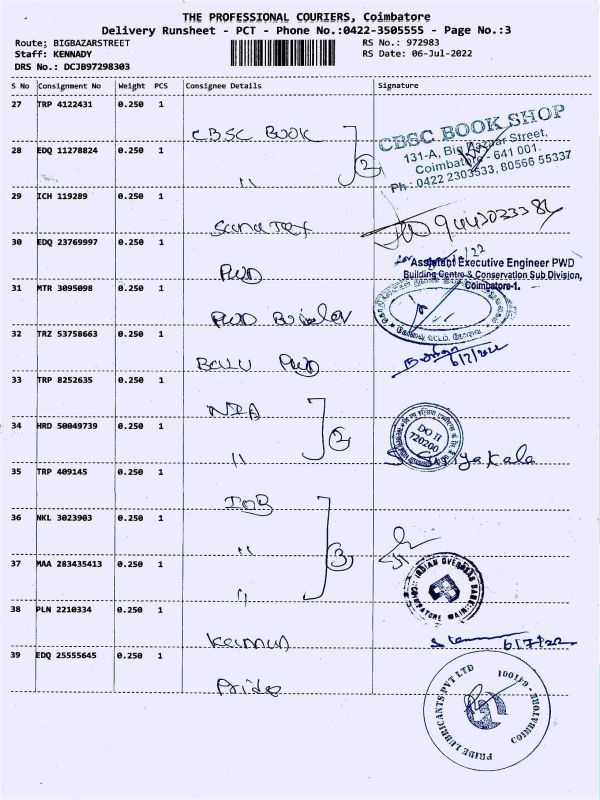 THE PROFESSIONAL COURIERS, Coimbatore
Delivery Runsheet - PCT - Phone No.:0422-3505555 - Page No.:3
Route: BIGBAZARSTREET
RS No.: 972983
Staff: KENNADY
RS Date: 06-Jul-2022
DRS No.: DCJB97298303
S No Consignment No Weight PCS Consignee Details Signature
27 TRP 4122431 0.250 1
CBSC BOOK
CBSC BOOK SHOP
131-A, Big Bazaar Street,
Coimbatore - 641 001.
Ph : 0422 2303533, 80566 55337
28 EDQ 11278824 0.250 1
"
2
29 ICH 119289 0.250 1
30 EDQ 23769997 0.250 1
PWD
Assistant Executive Engineer PWD
Building Centre & Conservation Sub Division,
Coimbatore-1.
31 MTR 3095098 0.250 1
PWD
32 TRZ 53758663 0.250 1
PWD
6/7/2022
33 TRP 8252635 0.250 1
NIA
34 HRD 50049739 0.250 1
"
2
DO II
720200
35 TRP 409145 0.250 1
IOB
36 NKL 3023903 0.250 1
"
3
37 MAA 283435413 0.250 1
"
INDIAN OVERSEAS BANK
COIMBATORE MAIN
38 PLN 2210334 0.250 1
6/7/22
39 EDQ 25555645 0.250 1
Pride
PRIDE LUBRICANTS PVT LTD
COIMBATORE - 641001